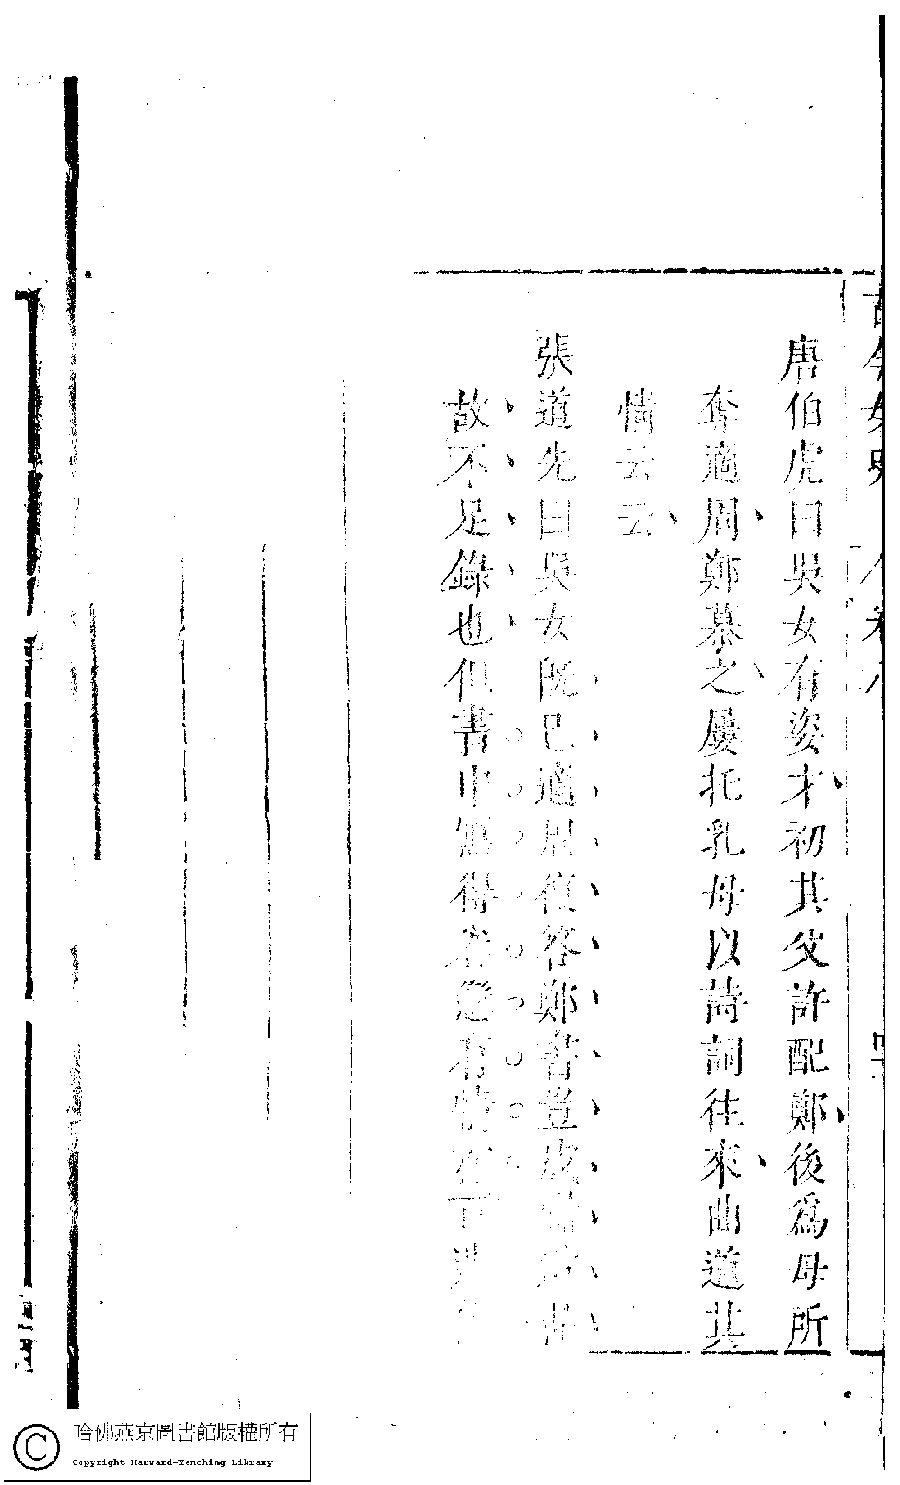 古今女史 卷八
唐伯虎曰吳女有姿才初其父許配鄭後為母所
奪適周鄭慕之屢托乳母以詩詞往來曲道其
情云云
張道先曰吳女既已適周復答鄭書豈
故不足錄也但書中無得有情在
哈佛燕京圖書館版權所有
Copyright Harvard-Yenching Library